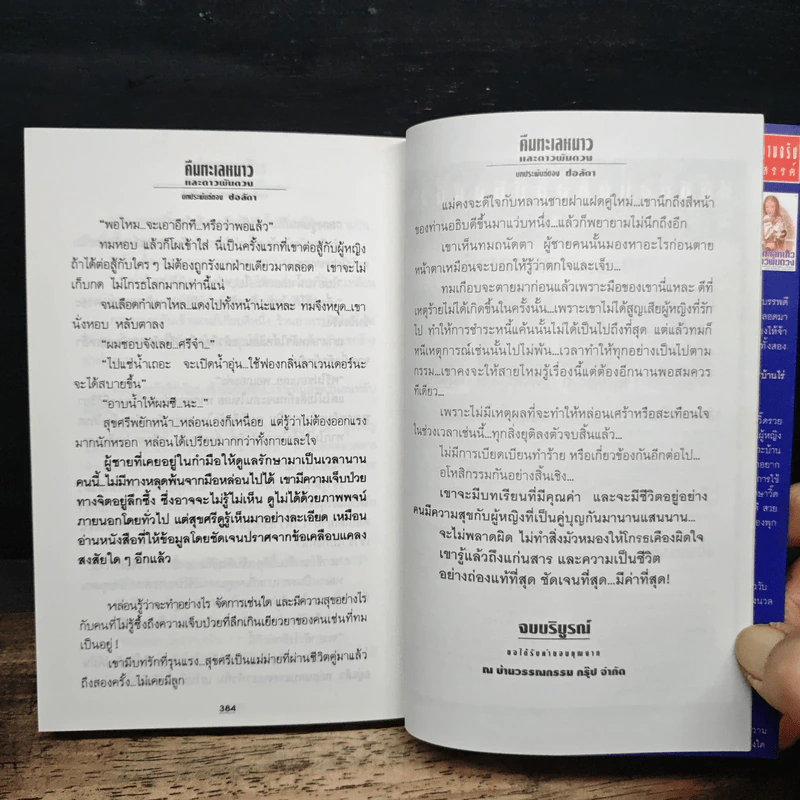 คืนทะเลหนาว
และดาวพันดวง
บทประพันธ์ของ ช่อลัดา
“พอไหม...จะเอาอีกที...หรือว่าพอแล้ว”
ทมหอบ แล้วก็โผเข้าใส่ นี่เป็นครั้งแรกที่เขาต่อสู้กับผู้หญิง
ถ้าได้ต่อสู้กับใคร ๆ ไม่ต้องถูกรังแกฝ่ายเดียวมาตลอด เขาจะไม่
เก็บกด ไม่โกรธโลกมากเท่านี้แน่
จนเลือดกำเดาไหล...แดงไปทั้งหน้าน่ะแหละ ทมจึงหยุด...เขา
นั่งหอบ หลับตาลง
“ผมชอบจังเลย...ศรีจ๋า...”
“ไปแช่น้ำเถอะ จะเปิดน้ำอุ่น...ใช้ฟองกลิ่นลาเวนเดอร์นะ
จะได้สบายขึ้น”
“อาบน้ำให้ผมซี...นะ...”
สุขศรีพยักหน้า...หล่อนเองก็เหนื่อย แต่รู้ว่าไม่ต้องออกแรง
มากนักหรอก หล่อนได้เปรียบมากกว่าทั้งกายและใจ
ผู้ชายที่เคยอยู่ในกำมือให้ดูแลรักษามาเป็นเวลานาน
คนนี้...ไม่มีทางหลุดพ้นจากมือหล่อนไปได้ เขามีความเจ็บป่วย
ทางจิตอยู่ลึกซึ้ง ซึ่งอาจจะไม่รู้ไม่เห็น ดูไม่ได้ด้วยภาพพจน์
ภายนอกโดยทั่วไป แต่สุขศรีดูรู้เห็นมาอย่างละเอียด เหมือน
อ่านหนังสือที่ให้ข้อมูลโดยชัดเจนปราศจากข้อเคลือบแคลง
สงสัยใด ๆ อีกแล้ว
หล่อนรู้ว่าจะทำอย่างไร จัดการเช่นใด และมีความสุขอย่างไร
กับคนที่ไม่รู้ซึ้งถึงความเจ็บป่วยที่ลึกเกินเยียวยาของคนเช่นที่ทม
เป็นอยู่ !
เขามีบทรักที่รุนแรง...สุขศรีเป็นแม่ม่ายที่ผ่านชีวิตคู่มาแล้ว
ถึงสองครั้ง...ไม่เคยมีลูก
364
คืนทะเลหนาว
และดาวพันดวง
บทประพันธ์ของ ช่อลัดา
แม่คงจะดีใจกับหลานชายฝาแฝดคู่ใหม่...เขานึกถึงสีหน้า
ของท่านอธิบดีขึ้นมาแว่บหนึ่ง...แล้วก็พยายามไม่นึกถึงอีก
เขาเห็นทมถนัดตา ผู้ชายคนนั้นมองหาอะไรก่อนตาย
หน้าตาเหมือนจะบอกให้รู้ว่าตกใจและเจ็บ...
ทมเกือบจะตายมาก่อนแล้วเพราะมือของเขานี่แหละ ดีที่
เหตุร้ายไม่ได้เกิดขึ้นในครั้งนั้น...เพราะเขาไม่ได้สูญเสียผู้หญิงที่รัก
ไป ทำให้การชำระหนี้แค้นนั้นไม่ได้เป็นไปถึงที่สุด แต่แล้วทมก็
หนีเหตุการณ์เช่นนั้นไปไม่พ้น...เวลาทำให้ทุกอย่างเป็นไปตาม
กรรม...เขาคงจะให้สายไหมรู้เรื่องนี้แต่ต้องอีกนานพอสมควร
ทีเดียว...
เพราะไม่มีเหตุผลที่จะทำให้หล่อนเศร้าหรือสะเทือนใจ
ในช่วงเวลาเช่นนี้...ทุกสิ่งยุติลงตัวจบสิ้นแล้ว...
ไม่มีการเบียดเบียนทำร้าย หรือเกี่ยวข้องกันอีกต่อไป...
อโหสิกรรมกันอย่างสิ้นเชิง...
เขาจะมีบทเรียนที่มีคุณค่า และจะมีชีวิตอยู่อย่าง
คนมีความสุขกับผู้หญิงที่เป็นคู่บุญกันมานานแสนนาน...
จะไม่พลาดผิด ไม่ทำสิ่งมัวหมองให้โกรธเคืองผิดใจ
เขารู้แล้วถึงแก่นสาร และความเป็นชีวิต
อย่างถ่องแท้ที่สุด ชัดเจนที่สุด...มีค่าที่สุด!
จบบริบูรณ์
ขอได้รับคำขอบคุณจาก
ณ บ้านวรรณกรรม กรุ๊ป จำกัด